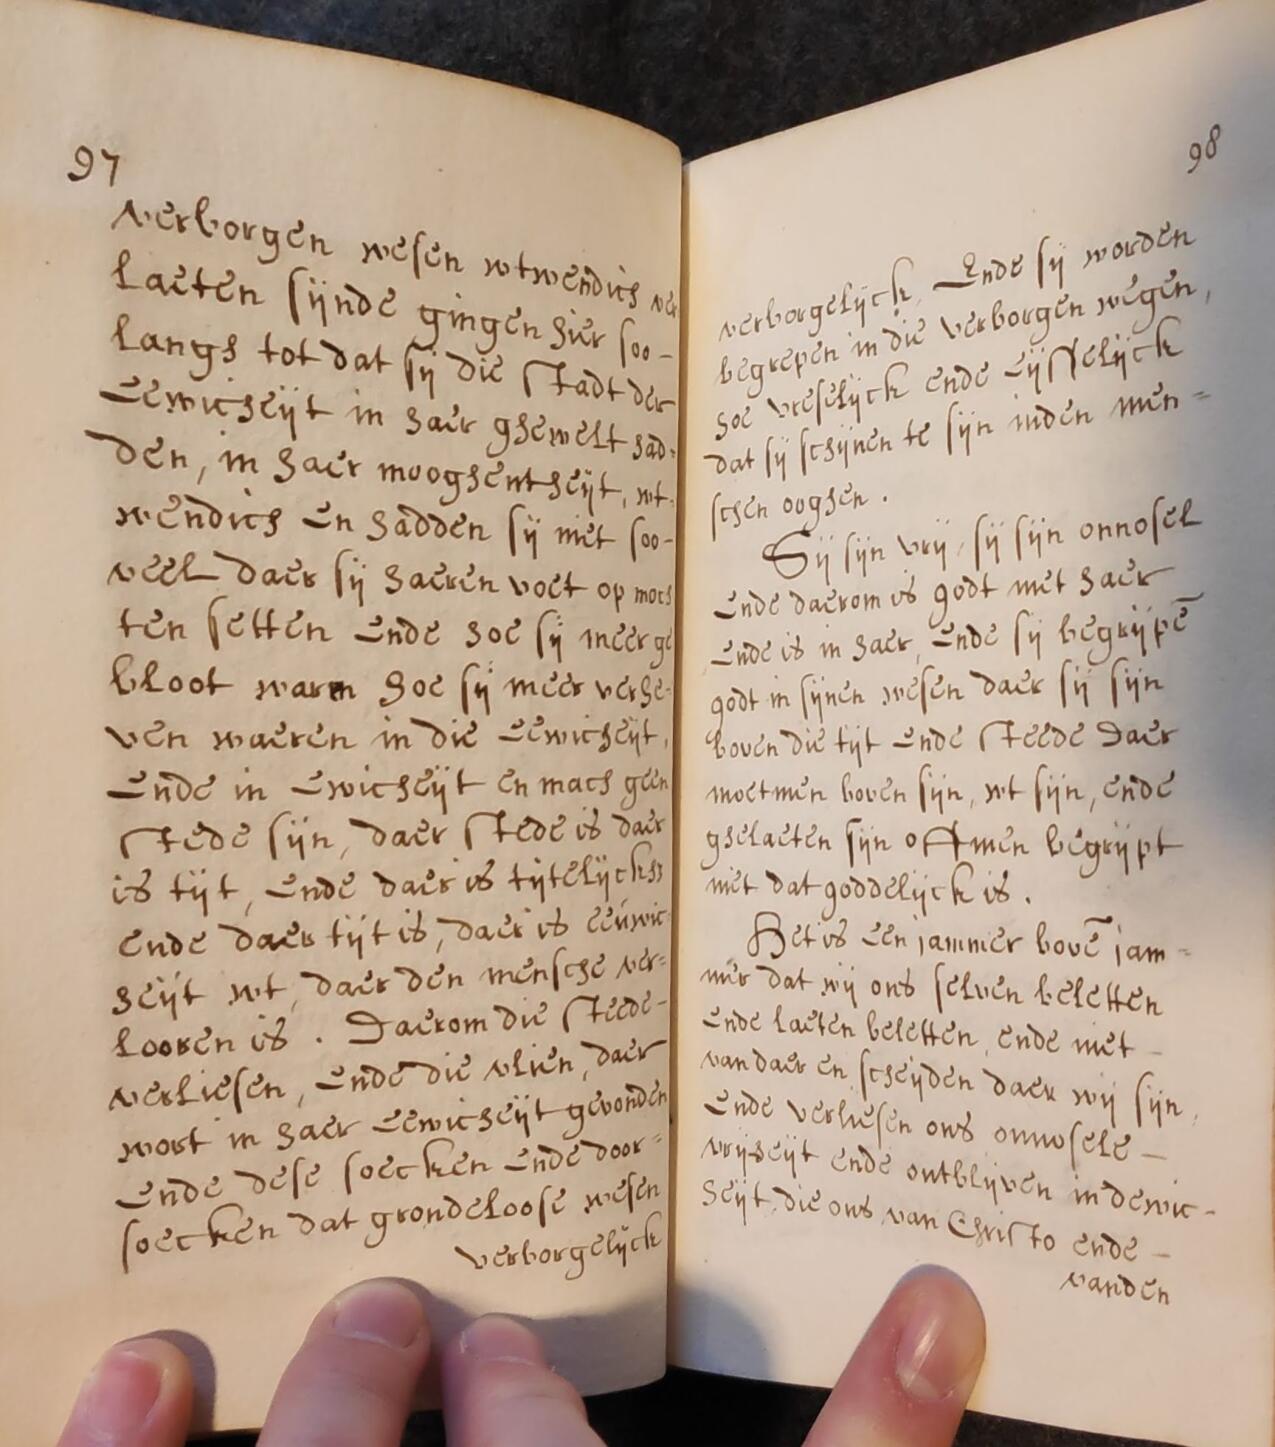 97
verborgen wesen wtwendich ver
laeten sijnde gingen hier soo-
langs tot dat sij die Stadt der
Eewicheijt in haer ghewelt had-
den, in haer mooghentheijt, wt-
wendich En hadden sij niet soo-
veel daer sij haeren voet op moch
ten setten Ende hoe sij meer ge
bloot waren hoe sij meer verhe-
ven waeren in die Eewicheijt,
Ende in Ewicheijt en mach geen
Stede sijn, daer Stede is daer
is tijt, Ende daer is tijtelijckh
ende daer tijt is, daer is eeuwic
heijt wt, daer den mensche ver-
looren is. Daerom die Steede-
verliesen, Ende die vlien, daer
wort in haer Eewicheijt gevonden
Ende dese soecken Ende door-
soecken dat grondeloose wesen
verborgelijck
98
verborgelijck, Ende sij worden
begrepen in die verborgen wegen,
hoe vreselijck ende Eijsselijck
dat sij schijnen te sijn inden men-
schen ooghen.
Sij sijn vrij, sij sijn onnosel
Ende daerom is godt met haer
Ende is in haer, Ende sij begrijpē
godt in sijnen wesen daer sij sijn
boven die tijt Ende Steede Daer
moetmen boven sijn, wt sijn, ende
ghelaeten sijn oftmen begrijpt
niet dat goddelijck is.
Het is Een jammer bovē jam-
mer dat wij ons selven beletten
Ende laeten beletten, ende niet-
van daer en scheijden daer wij sijn,
Ende verliesen ons onnosele-
vrijheijt ende ontblijven in dewic-
heijt, die ons van Christo ende-
vanden